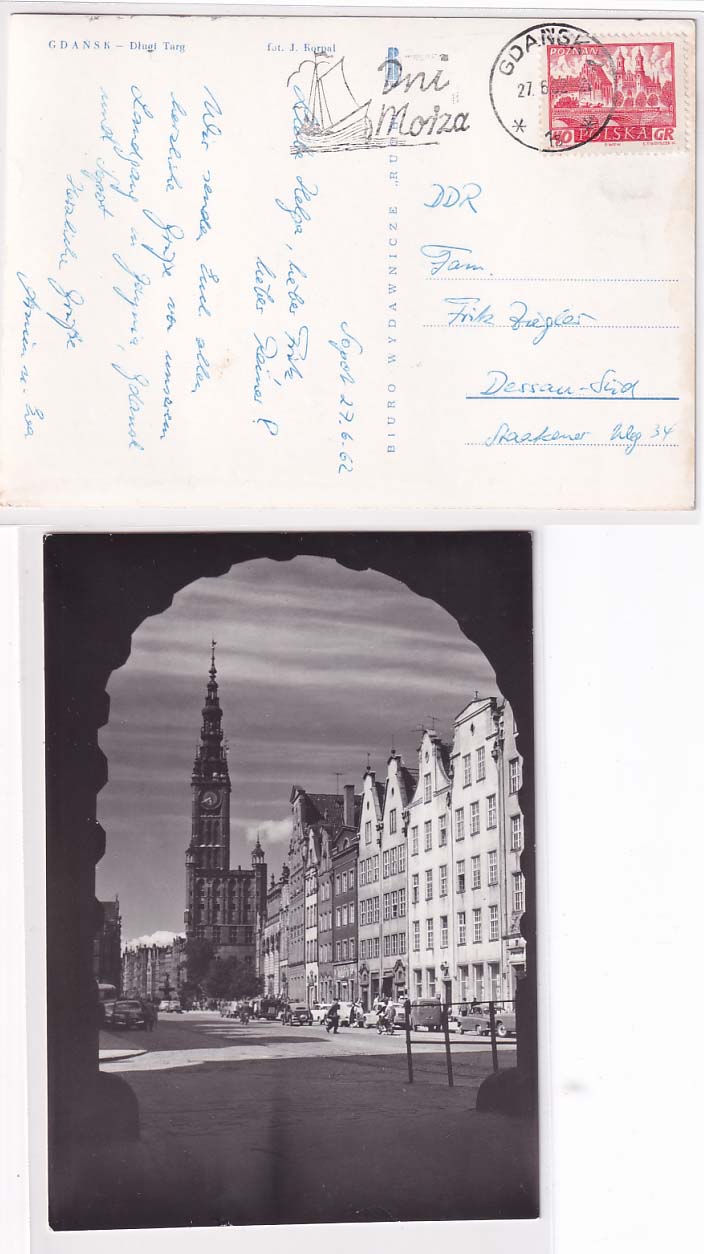 GDAŃSK – Długi Targ
fot. J. Korpal
Dni
Morza
GDAŃSK
27.6.62
POZNAŃ
40 POLSKA GR
BIURO WYDAWNICZE „RUCH”
Sopot 27.6.62
Liebe Helga, lieber Fritz
lieber Rainer!
Wir senden Euch allen
herzliche Grüße von unserem
Landgang in Gdynia, Gdansk
und Sopot
Herzliche Grüße
Armin u. Eva
DDR
Fam.
Fritz Ziegler
Dessau-Süd
Staakener Weg 34